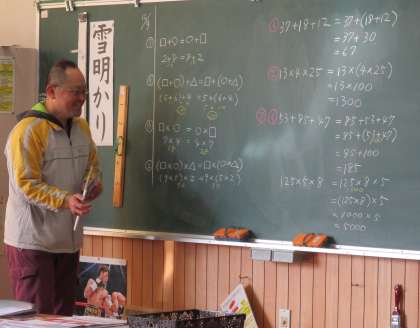 雪明かり
① □+○=○+□
② (□+○)+△=□+(○+△)
③ □×○=○×□
④ (□×○)×△=□×(○×△)
① 37+18+12 = 37+(18+12)
= 37+30
= 67
② 13×4×25 = 13×(4×25)
= 13×100
= 1300
53+85+47 = 85+53+47
= 85+(53+47)
= 85+100
= 185
125×5×8 = 125×8×5
= (125×8)×5
= 1000×5
= 5000